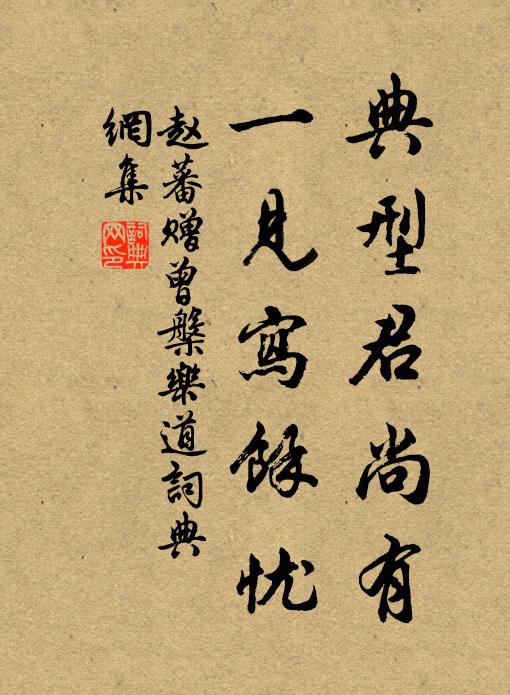 典型君尚有
一見寫餘忧
赵蕃赠曾槃樂道詞典
網集
詞典
网印